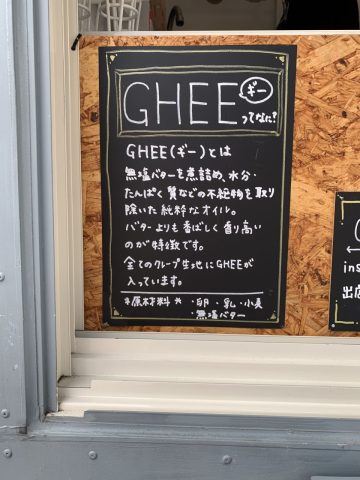 GHEE ギー
ってなに?
GHEE(ギー)とは
無塩バターを煮詰め、水分・
たんぱく質などの不純物を取り
除いた純粋なオイル。
バターよりも香ばしく香り高い
のが特徴です。
全てのクレープ生地にGHEEが
入っています。
*原材料* ・卵・乳・小麦
・無塩バター
ins
出店